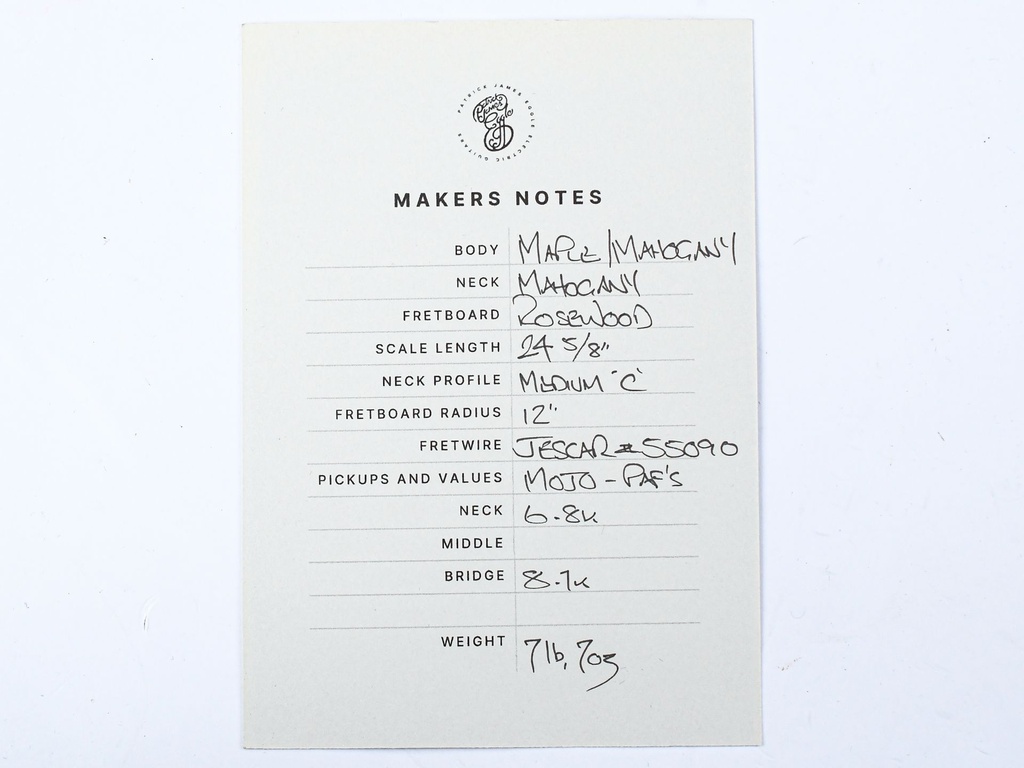 PATRICK JAMES EGGLE ELECTRIC GUITARS
Patrick James Eggle
MAKERS NOTES
BODY MAPLE/MAHOGANY
NECK MAHOGANY
FRETBOARD ROSEWOOD
SCALE LENGTH 24 5/8"
NECK PROFILE MEDIUM "C"
FRETBOARD RADIUS 12"
FRETWIRE JESCAR #55090
PICKUPS AND VALUES MOJO - PAF'S
NECK 6.8K
MIDDLE
BRIDGE 8.1K
WEIGHT 7lb, 7oz